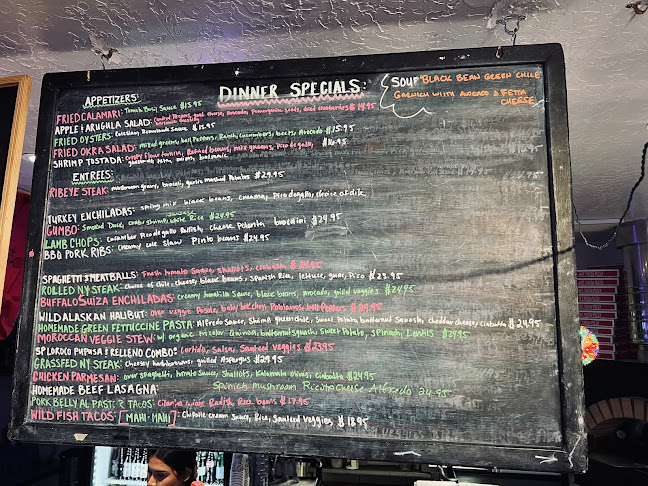 DINNER SPECIALS:
SOUP BLACK BEAN GREEN CHILE
GARNISH WITH AVOCADO & FETTA
CHEESE
APPETIZERS:
FRIED CALAMARI: Tomato Basil Sauce $15.95
APPLE & ARUGHLA SALAD: $14.95
FRIED OYSTERS: Coleslaw, Remoulade Sauce $15.95
FRIED OKRA SALAD: mixed greens, bell Peppers, Ranch, Cucumbers, beets, Avocado $15.95
SHRIMP TOSTADA: Crispy flour tortilla, Refried beans, mix greens, Pico de gallo, $16.95
ENTREES:
RIBEYE STEAK: mushroom gravy, broccoli, garlic mashed Potatoes $29.95
TURKEY ENCHILADAS: spring mix black beans, crema, Pico de gallo, choice of chile
GUMBO: Smoked Duck, crab, shrimp, sausage White Rice $24.95
LAMB CHOPS: Cucumber Pico de gallo Relish, cheese Polenta brocolini $24.95
BBQ PORK RIBS: Creamy Cole slaw Pinto beans $24.95
SPAGHETTI & MEATBALLS: Fresh tomato Sauce, shallots, ciabatta $24.95
ROLLED NY STEAK: choice of chile, cheese, black beans, Spanish Rice, lettuce, guac, Pico $23.95
BUFFALO SUIZA ENCHILADAS Creamy tomatillo Sauce, black beans, avocado, grilled veggies $24.95
WILD ALASKAN HALIBUT: over veggie Posole, baby bok choy, Poblanos, bell Peppers $29.95
HOMEMADE GREEN FETTUCCINE PASTA: Alfredo Sauce, Shrimp, green chile, Sweet Potato, butternut Squash, cheddar cheese, ciabatta $24.95
MOROCCAN VEGGIE STEW: w/ organic tri color Quinoa, butternut squash, Sweet Potato, spinach, Lentils $24.95
PUPUSA & RELLENO COMBO: Curtido, Salsa, Sauteed veggies $23.95
GRASSFED NY STEAK: cheesy grilled Asparagus $29.95
CHICKEN PARMESAN: over spaghetti, tomato Sauce, Shallots, Kalamata olives, Ciabatta $24.95
HOMEMADE BEEF LASAGNA: Spinich mushroom Ricotta cheese Alfredo 24.95
PORK BELLY AL PASTOR TACOS: Cilantro onion Radish, Rice beans $17.95
WILD FISH TACOS: MAHI-MAHI Chipotle cream Sauce, Rice, Sauteed veggies, $18.95